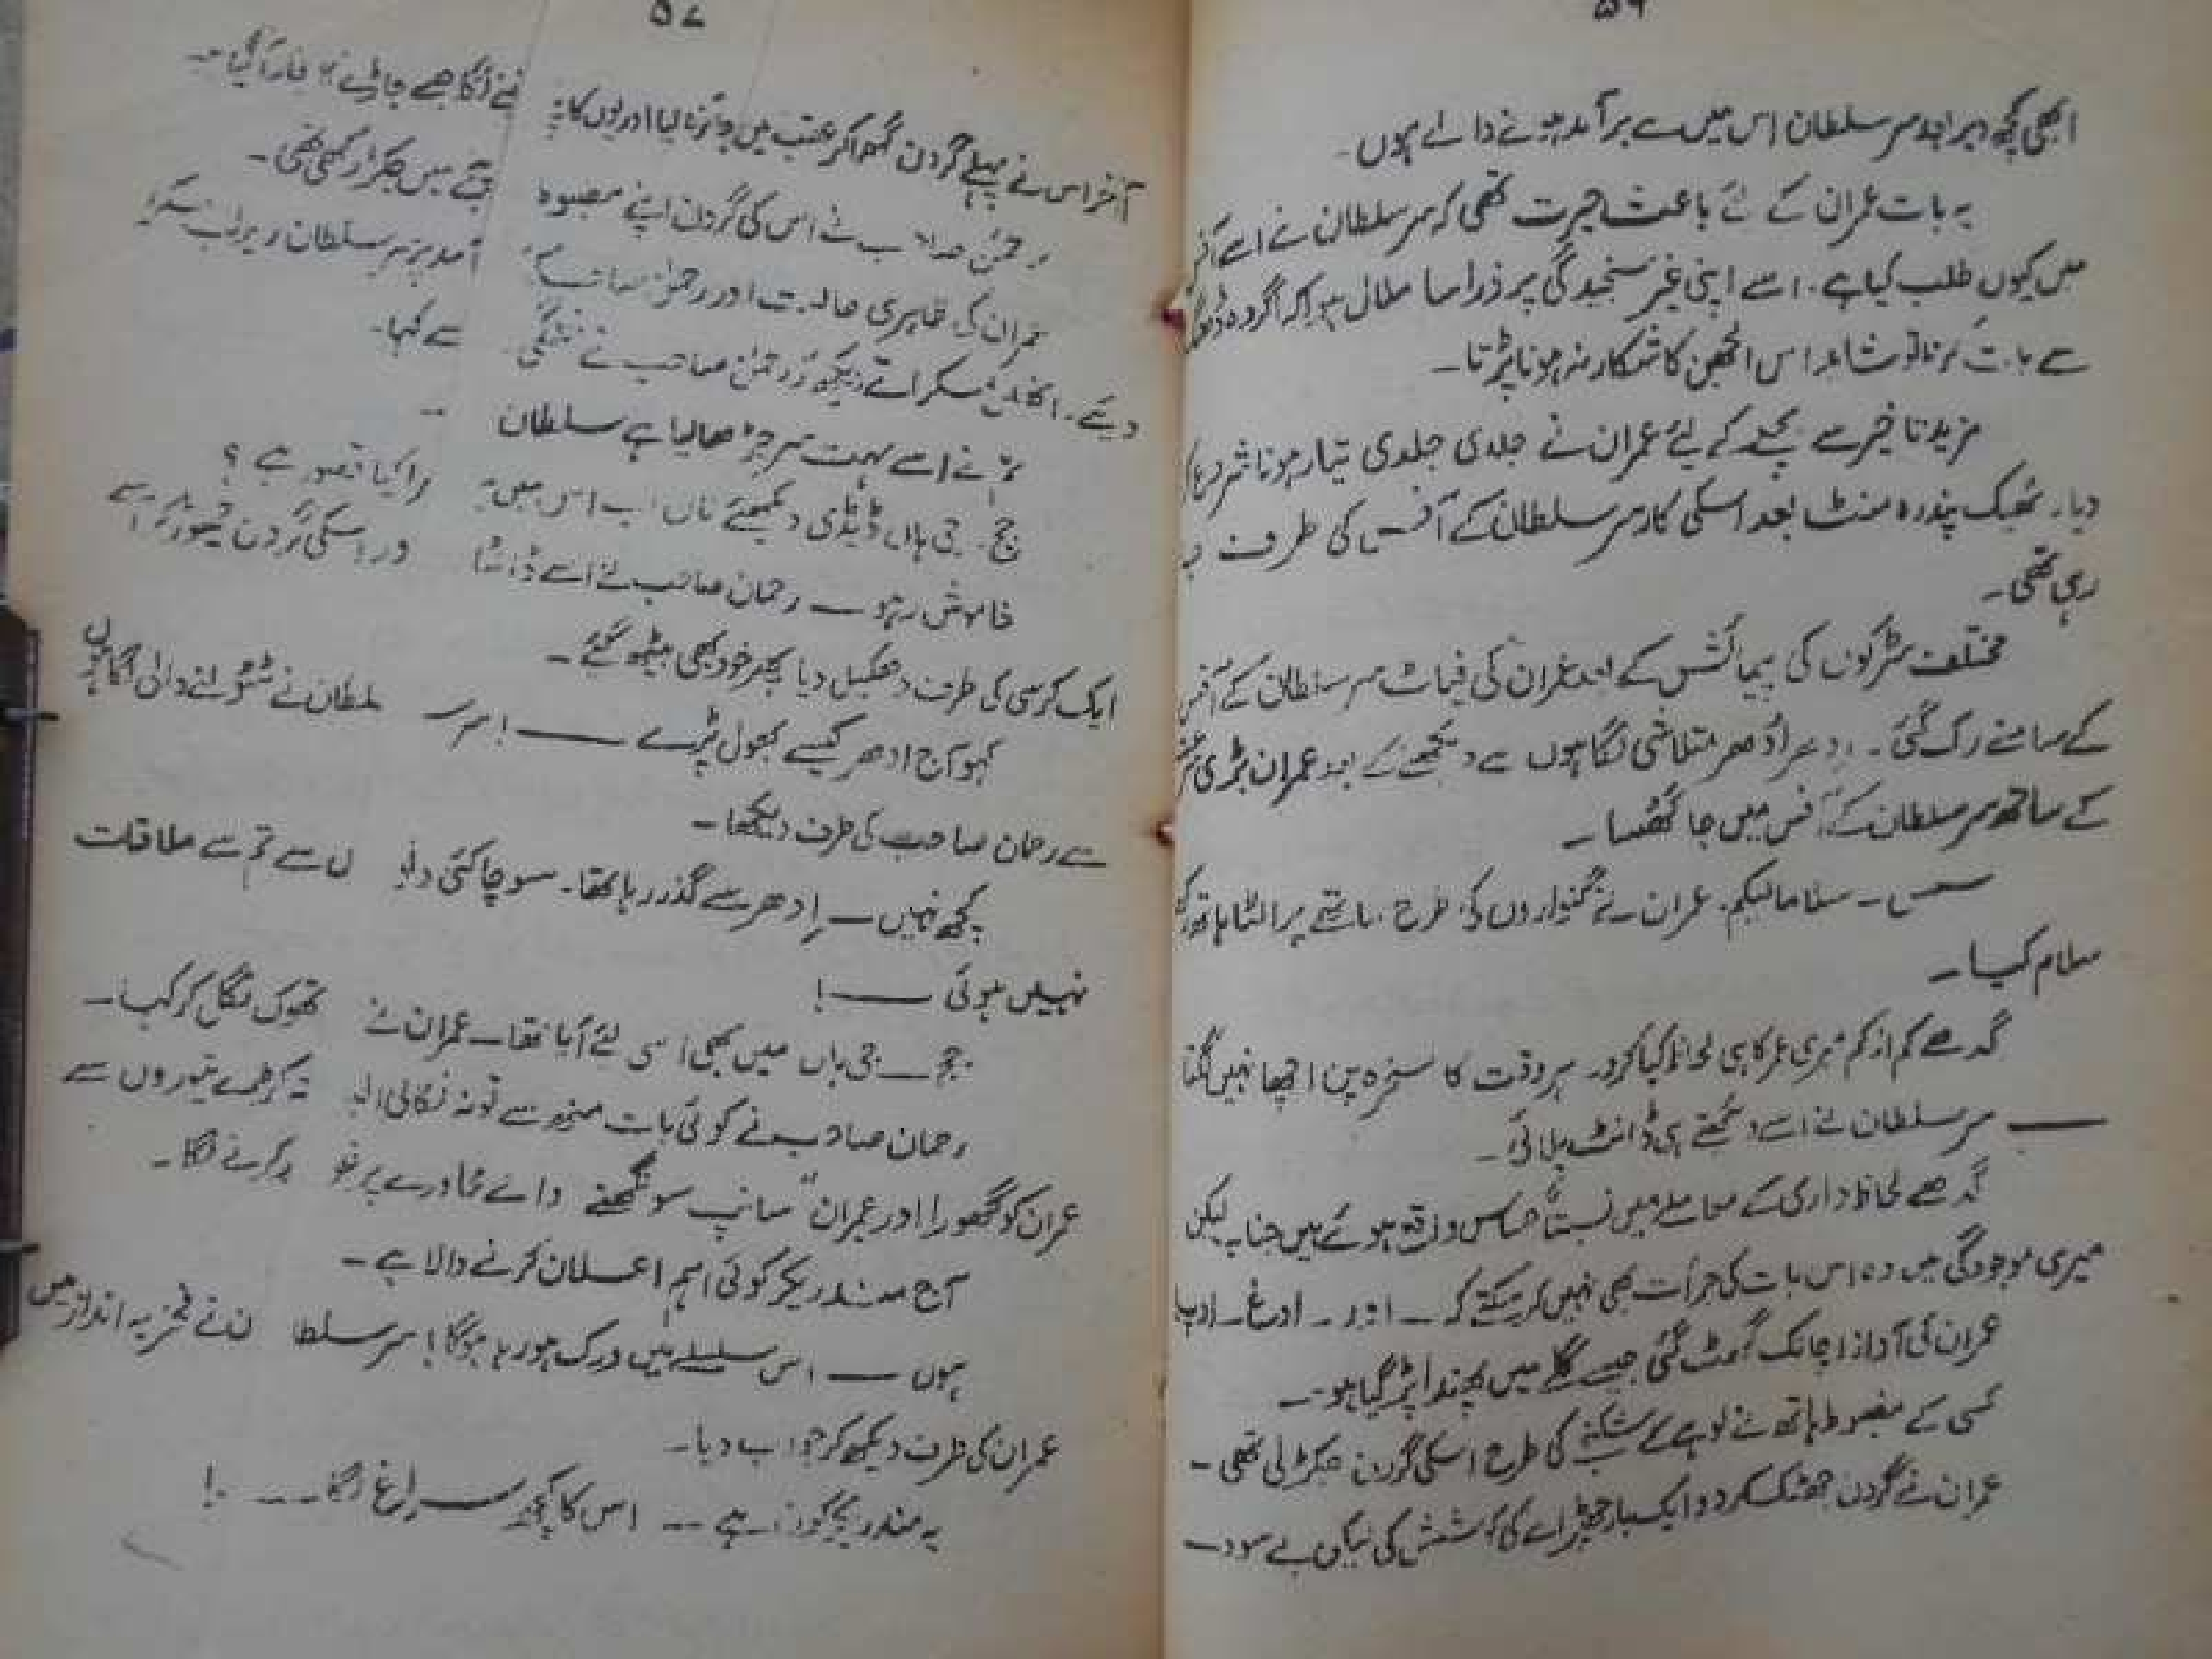 ۵۶
ابھی کچھ دیر بعد سر سلطان اس میں سے برآمد ہونے والے ہوں۔
یہ بات عمران کے لئے باعث حیرت تھی کہ سر سلطان نے اسے آفس
میں کیوں طلب کیا ہے۔ اسے اپنی غیر سنجیدگی پر ذرا سا ملال ہوا کہ اگر وہ ڈھنگ
سے بات کرتا تو شاید اس الجھن کا شکار نہ ہونا پڑتا۔
مزید تاخیر سے بچنے کے لیئے عمران نے جلدی جلدی تیار ہونا شروع کر
دیا۔ ٹھیک پندرہ منٹ بعد اسکی کار سر سلطان کے آفس کی طرف
رہی تھی۔
مختلف سڑکوں کی پیمائش کے بعد عمران کی فیاٹ سر سلطان کے آفس
کے سامنے رک گئی۔ ادھر اُدھر متلاشی نگاہوں سے دیکھنے کے بعد عمران بڑی
کے ساتھ سر سلطان کے آفس میں جا گھُسا۔
سس۔ سلاما لیکم۔ عمران نے گنواروں کی طرح ماتھے پر الٹا ہاتھ
سلام کیا۔
گدھے کم از کم میری عمر کا ہی لحاظ کیا کرو۔ ہر وقت کا مسخرہ پن اچھا نہیں لگتا
—— سر سلطان نے اسے دیکھتے ہی ڈانٹ پلائی۔
گدھے لحاظ داری کے معاملے میں نسبتاً حساس واقع ہوئے ہیں جناب لیکن
میری موجودگی میں وہ اس بات کی جرأت بھی نہیں کر سکتے کہ۔ اور۔ اوغ۔
عمران کی آواز اچانک گھٹ گئی جیسے گلے میں پھندا پڑ گیا ہو۔
کسی کے مضبوط ہاتھ نے لوہے کے شکنجے کی طرح اسکی گردن جکڑ لی تھی۔
عمران نے گردن جھٹک کر دو ایک بار چھڑانے کی کوشش کی لیکن بے سود۔
۵۷
آخر اس نے پہلے گردن گھما کر عقب میں جائزہ لیا اور یوں کانپنے لگا جیسے جاڑے بخار آ گیا ہو۔
رحمٰن صاحب نے اس کی گردن اپنے مضبوط پنجے میں جکڑ رکھی تھی۔
عمران کی ظاہری حالت اور رحمٰن صاحب کی آمد پر سر سلطان زیر لب مسکرا
دیئے۔ انہیں مسکراتے دیکھ کر رحمٰن صاحب نے خفگی سے کہا۔
تم نے اسے بہت سر چڑھا لیا ہے سلطان۔
جج۔ جی ہاں ڈیڈی دیکھیئے ناں اب اس میں میرا کیا قصور ہے؟
خاموش رہو۔ رحمان صاحب نے اسے ڈانٹا اور اسکی گردن چھوڑ کر اسے
ایک کرسی کی طرف دھکیل دیا پھر خود بھی بیٹھ گئے۔
کہو آج ادھر کیسے بھول پڑے ——! سر سلطان نے ٹٹولنے والی نگاہوں
سے رحمان صاحب کی طرف دیکھا۔
کچھ نہیں — اِدھر سے گذر رہا تھا۔ سوچا کئی دنوں سے تم سے ملاقات
نہیں ہوئی ——!
جج — جی ہاں میں بھی اسی لئے آیا تھا۔ عمران نے تھوک نگل کر کہا۔
رحمان صاحب نے کوئی بات منہ سے تو نہ نکالی البتہ کڑے تیوروں سے
عمران کو گھورا اور عمران "سانپ سونگھنے والے محاورے پر غور کرنے لگا۔
آج سندریکر کوئی اہم اعلان کرنے والا ہے۔
ہوں — اس سلسلے میں ورک ہو رہا ہوگا! سر سلطان نے فخریہ انداز میں
عمران کی طرف دیکھ کر جواب دیا۔
یہ سندریکر کون ہے -- اس کا کچھ سراغ لگا --- !